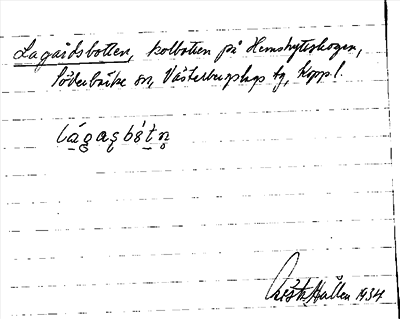 Lagårdsbotten, kolbotten på Hemshyttskogen,
Söderbärke sn, Västerbergslags tg, Kopp l.
lágasbótn
Hallen 1934